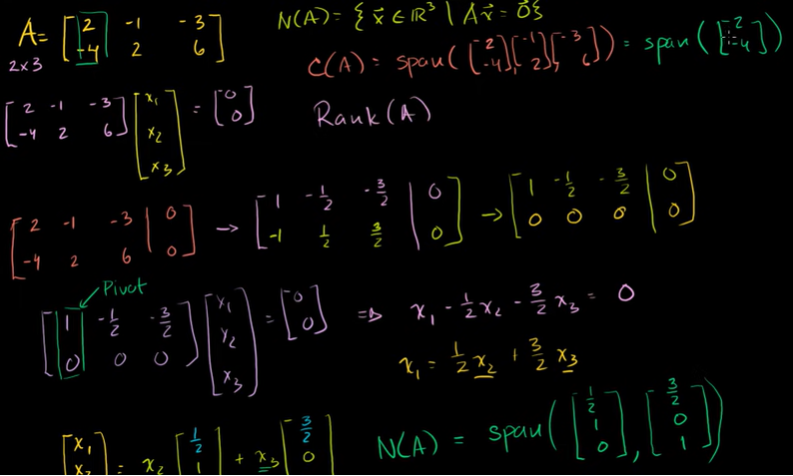 A = [2 -1 -3; -4 2 6] N(A) = { x⃗ ∈ ℝ³ | Ax⃗ = 0⃗ }
2x3 C(A) = span( [2; -4], [-1; 2], [-3; 6] ) = span( [2; -4] )
[2 -1 -3; -4 2 6] [x₁; x₂; x₃] = [0; 0] Rank(A)
[2 -1 -3 | 0; -4 2 6 | 0] → [1 -1/2 -3/2 | 0; -1 1/2 3/2 | 0] → [1 -1/2 -3/2 | 0; 0 0 0 | 0]
Pivot
[1 -1/2 -3/2; 0 0 0] [x₁; x₂; x₃] = [0; 0] ⇒ x₁ - 1/2 x₂ - 3/2 x₃ = 0
x₁ = 1/2 x₂ + 3/2 x₃
[x₁; x₂ = x₂ [1/2; 1 + x₃ [3/2; 0 N(A) = span( [1/2; 1; 0], [3/2; 0; 1] )